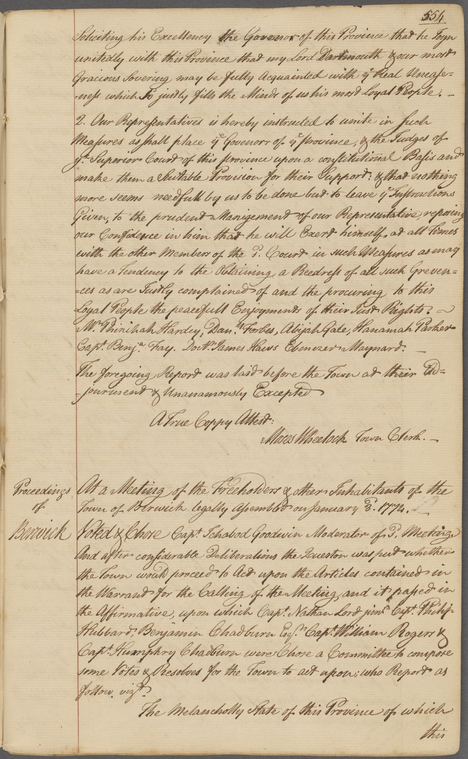 554.
Soliciting his Excellency the Governor of this Province that he Joyn
unitedly with this Province that my Lord Dartmouth & our most
Gracious Sovering may be fully Acquainted with ye Real Uneasi-
ness which So justly fills the Minds of us his most Loyal People. –
2. Our Representatives is hereby instructed to unite in such
Measures as shall place ye Governor of ye province, & the Judges of
ye Superior Court of this province upon a constitutional Basis and
make them a Suitable Provision for their Support, & that nothing
more seems needfull by us to be done but to leave ye Instructions
Given, to the prudent Management of our Representative, reposing
our Confidence in him that he will Exert himself, at all times
with the other Members of the G. Court in such Measures as may
have a Tendency to the Obtaining a Redress of all such Greven-
ces as are Justly complained of and the procuring to this
Loyal People the peacefull Enjoyments of their Just Rights. ~
Mr. Phinihah Hardy, Dan. Forbes, Abijah Gale, Hananiah Parker
Capt. Benja. Fay. Doctr. James Haws Ebenezer Maynard. –
The foregoing Report was laid before the Town at their Ad-
journment & Unanamously Excepted
A True Coppy Attest.
Moses Wheelock Town Clerk. –
Proceedings
of
Berwick
At a Meeting of the Freeholders & other Inhabitants of the
Town of Berwick legally assembled on January 3d. 1774.
Voted & Chose Capt. Ichabod Goodwin Moderator of sd. Meeting
And after considerable Deliberations the Question was put whether
the Town would proceed to Act upon the Articles contained in
the Warrant for the Calling of the Meeting, and it passed in
the Affirmative, upon which Capt. Nathan Lord junr. Capt. Philip
Hubbard, Benjamin Chadburn Esqr. Capt. William Rogers &
Capt. Humphry Chadburn were Chose a Committee to compose
some Votes & Resolves for the Town to act upon; who Report as
follow. vizt.
The Melancholly State of this Province of which
this